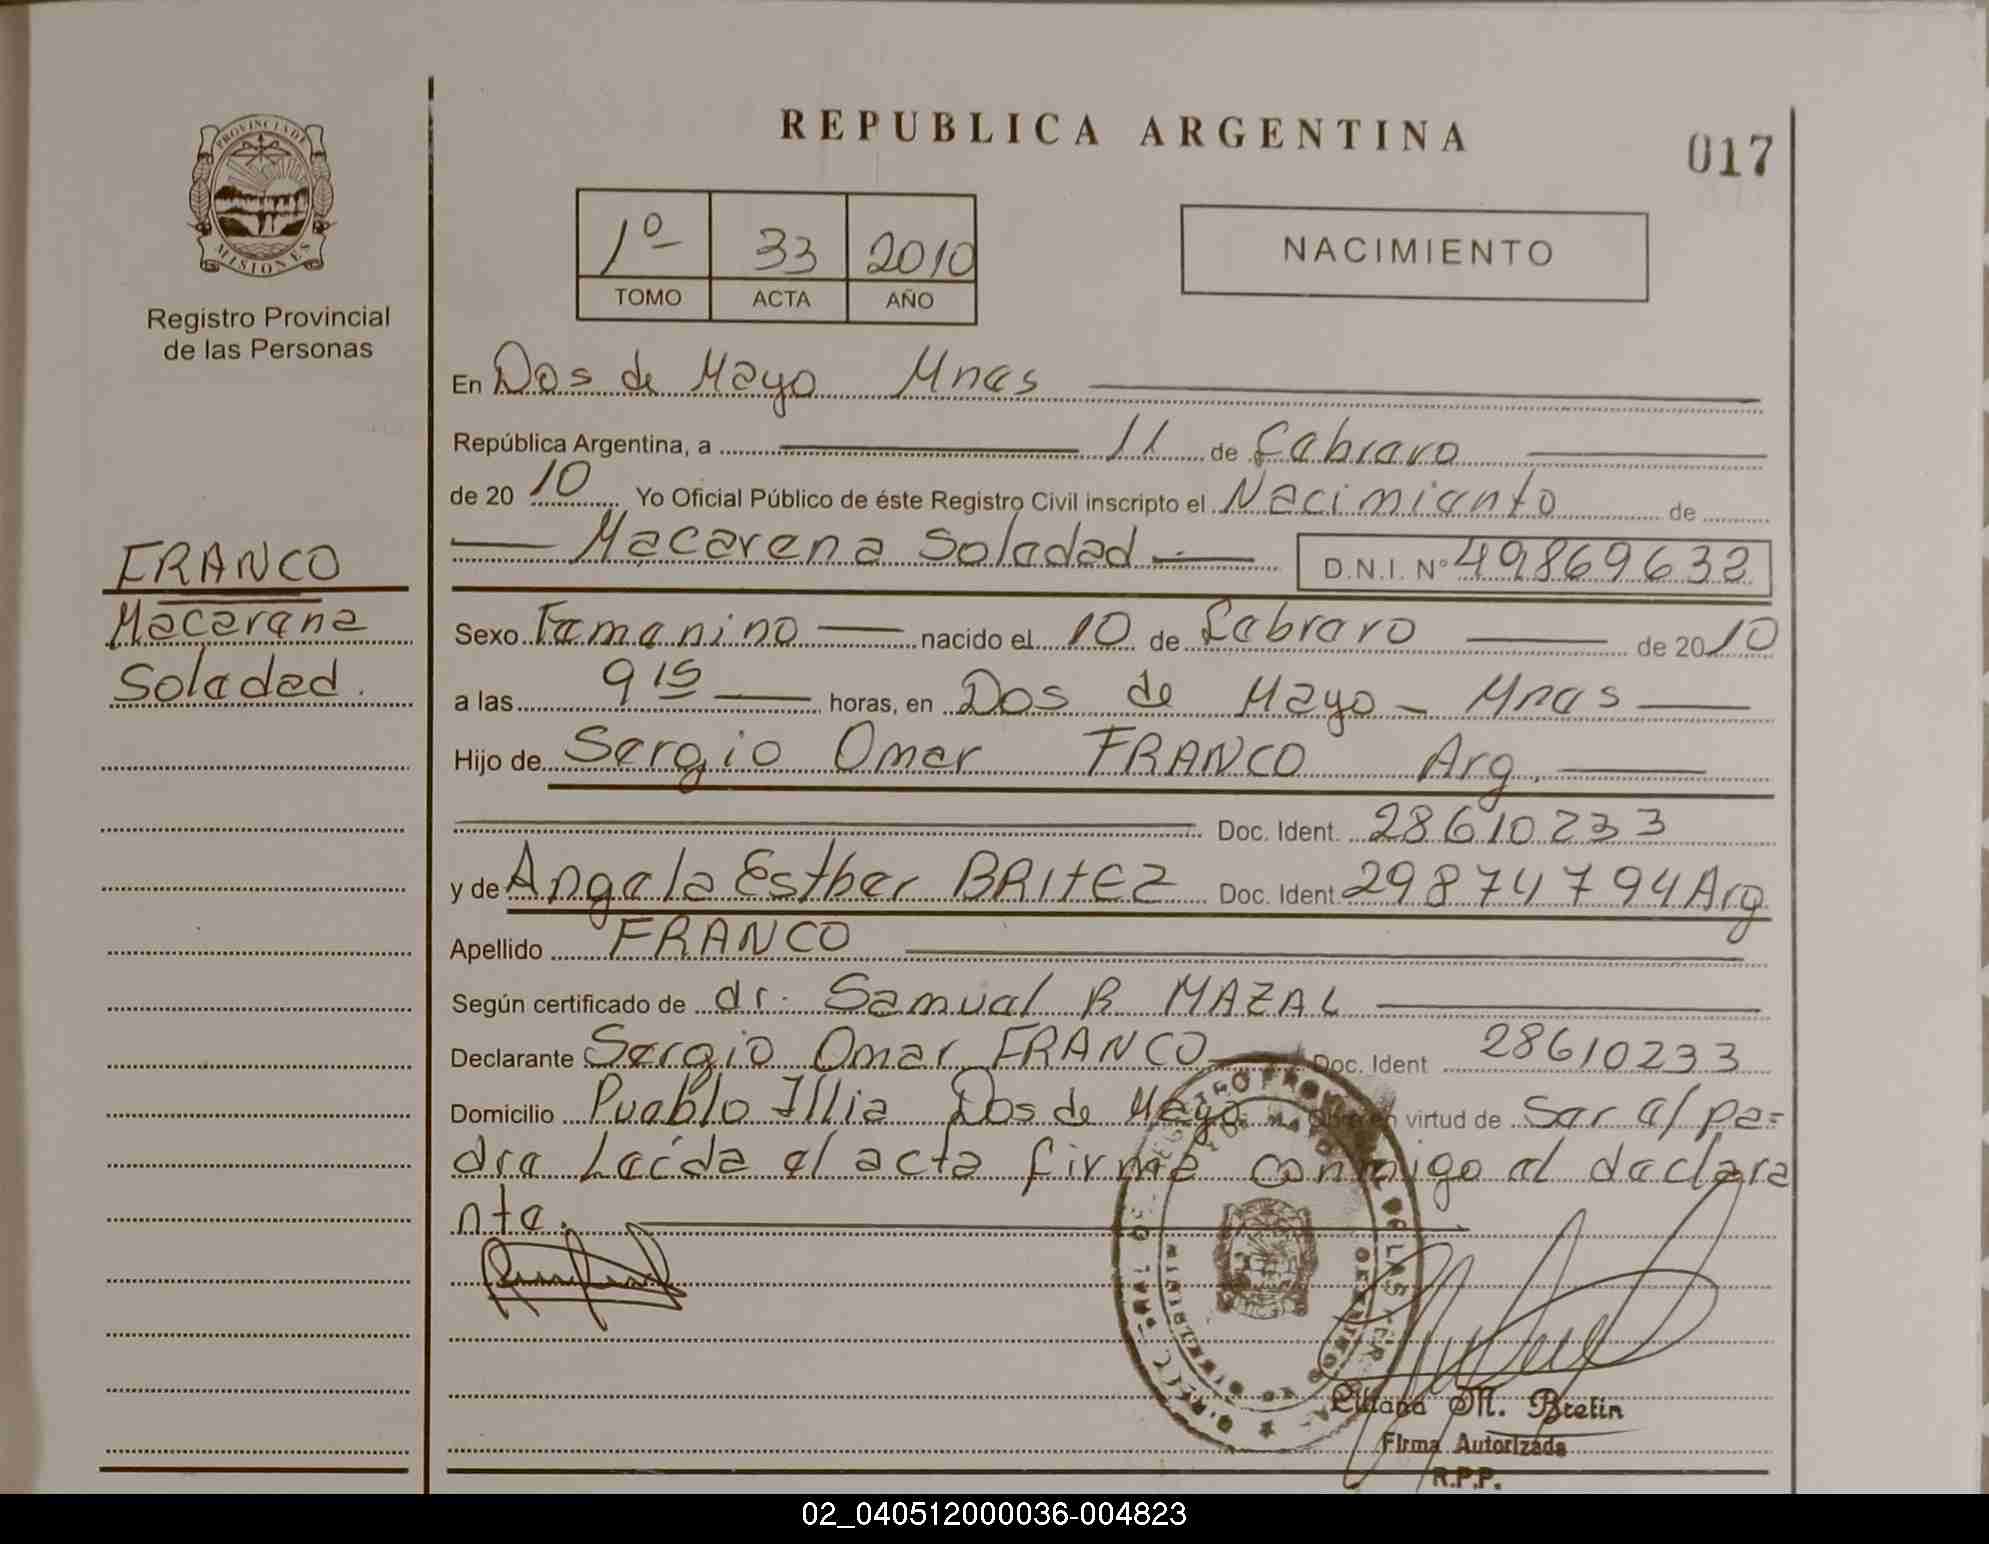 PROVINCIA DE
MISIONES
Registro Provincial
de las Personas
FRANCO
Macarena
Soledad.
REPUBLICA ARGENTINA
017
1º 33 2010
TOMO ACTA AÑO
NACIMIENTO
En Dos de Mayo Mnes
República Argentina, a 11 de Febrero
de 2010 Yo Oficial Público de éste Registro Civil inscripto el Nacimiento de
Macarena Soledad D.N.I. Nº 49869632
Sexo Femenino nacido el 10 de Febrero de 2010
a las 9 15 horas, en Dos de Mayo - Mnes
Hijo de Sergio Omar FRANCO Arg.
Doc. Ident. 28610233
y de Angela Esther BRITEZ Doc. Ident. 29874794 Arg
Apellido FRANCO
Según certificado de dr. Samuel R MAZAL
Declarante Sergio Omar FRANCO Doc. Ident 28610233
Domicilio Pueblo Illia Dos de Mayo Obra en virtud de Ser el pa=
dre Leída el acta firma conmigo el declara
nte.
Liliana M. Bretin
Firma Autorizada
R.P.P.
02_040512000036-004823